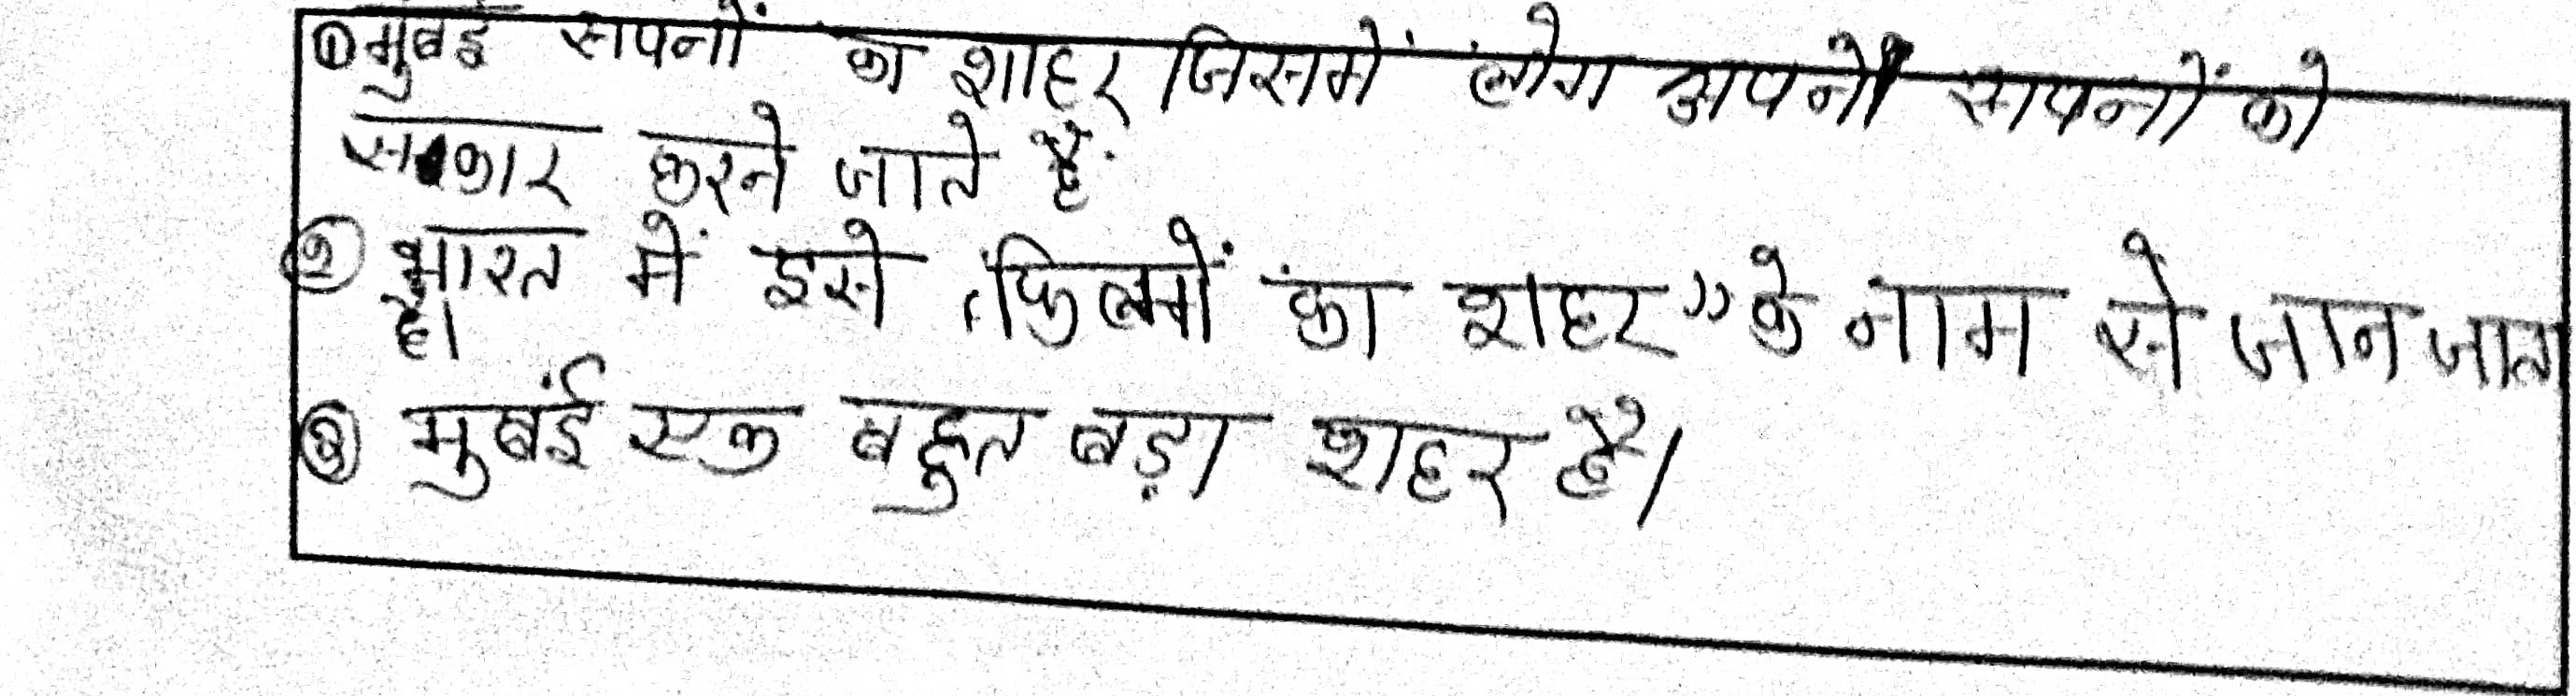 ① मुंबई सपनों का शाहर जिसमें लोग अपने सपनों को
सकार करने जाते हैं
② भारत में इसे "फिल्मों का शहर" के नाम से जान जाता
है।
③ मुबंई एक बहुत बड़ा शहर है।